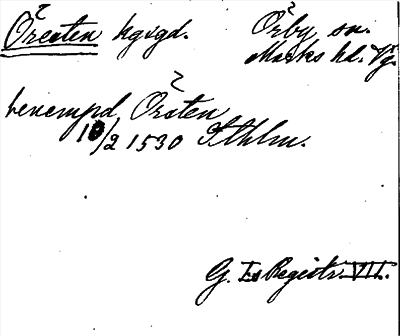 Öresten kgsgd. Örby sn.
Marks hd. Vg.
benempd Örsten
10/2 1530 Sthlm.
G. I:s Registr. VII.